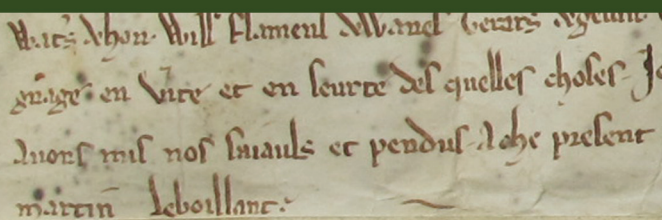 Wat's de hou Will' flament de Wanel Gerars de gemin
gnage en Vite et en seurte des quelles choses Je
Auons mis nos saiauls et pendus A che present
martin leboillant